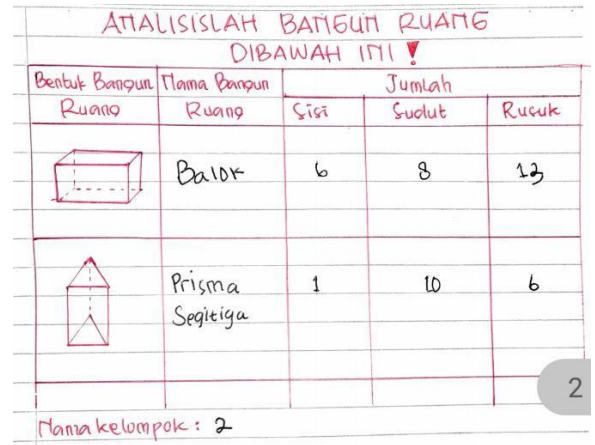 ANALISISLAH BANGUN RUANG
DIBAWAH INI !
Bentuk Bangun Ruang | Nama Bangun Ruang | Jumlah
Sisi | Sudut | Rusuk
Balok | 6 | 8 | 13
Prisma Segitiga | 1 | 10 | 6
2
Nama kelompok : 2